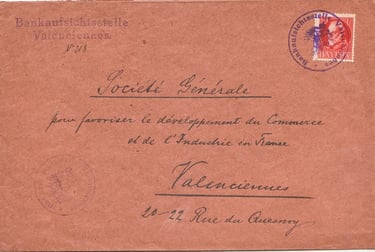 Bankaufsichtsstelle
Valenciennes.
Bankaufsichtsstelle
Société Générale
pour favoriser le développement du Commerce
et de l'Industrie en France
Valenciennes
20-22 Rue du Quesnoy